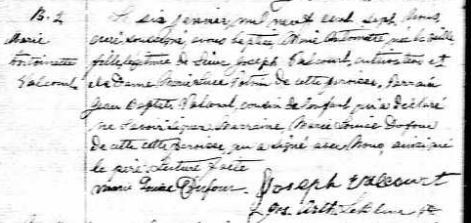 B. 2
Marie
Antoinette
Valcourt
Le six janvier, mil neuf cent sept, Nous,
curé soussigné avons baptisé, Marie Antoinette, née la veille
fille légitime de Sieur Joseph Valcourt, cultivateur et
de Dame Marie de cette paroisse. Parrain
Jean Baptiste Valcourt, cousin de l'enfant qui a déclaré
ne savoir signer, marraine, Marie Louise Dufour
de cette cette paroisse, qui a signé avec Nous, ainsi que
le père. Lecture faite
Marie Louise Dufour. Joseph Valcourt